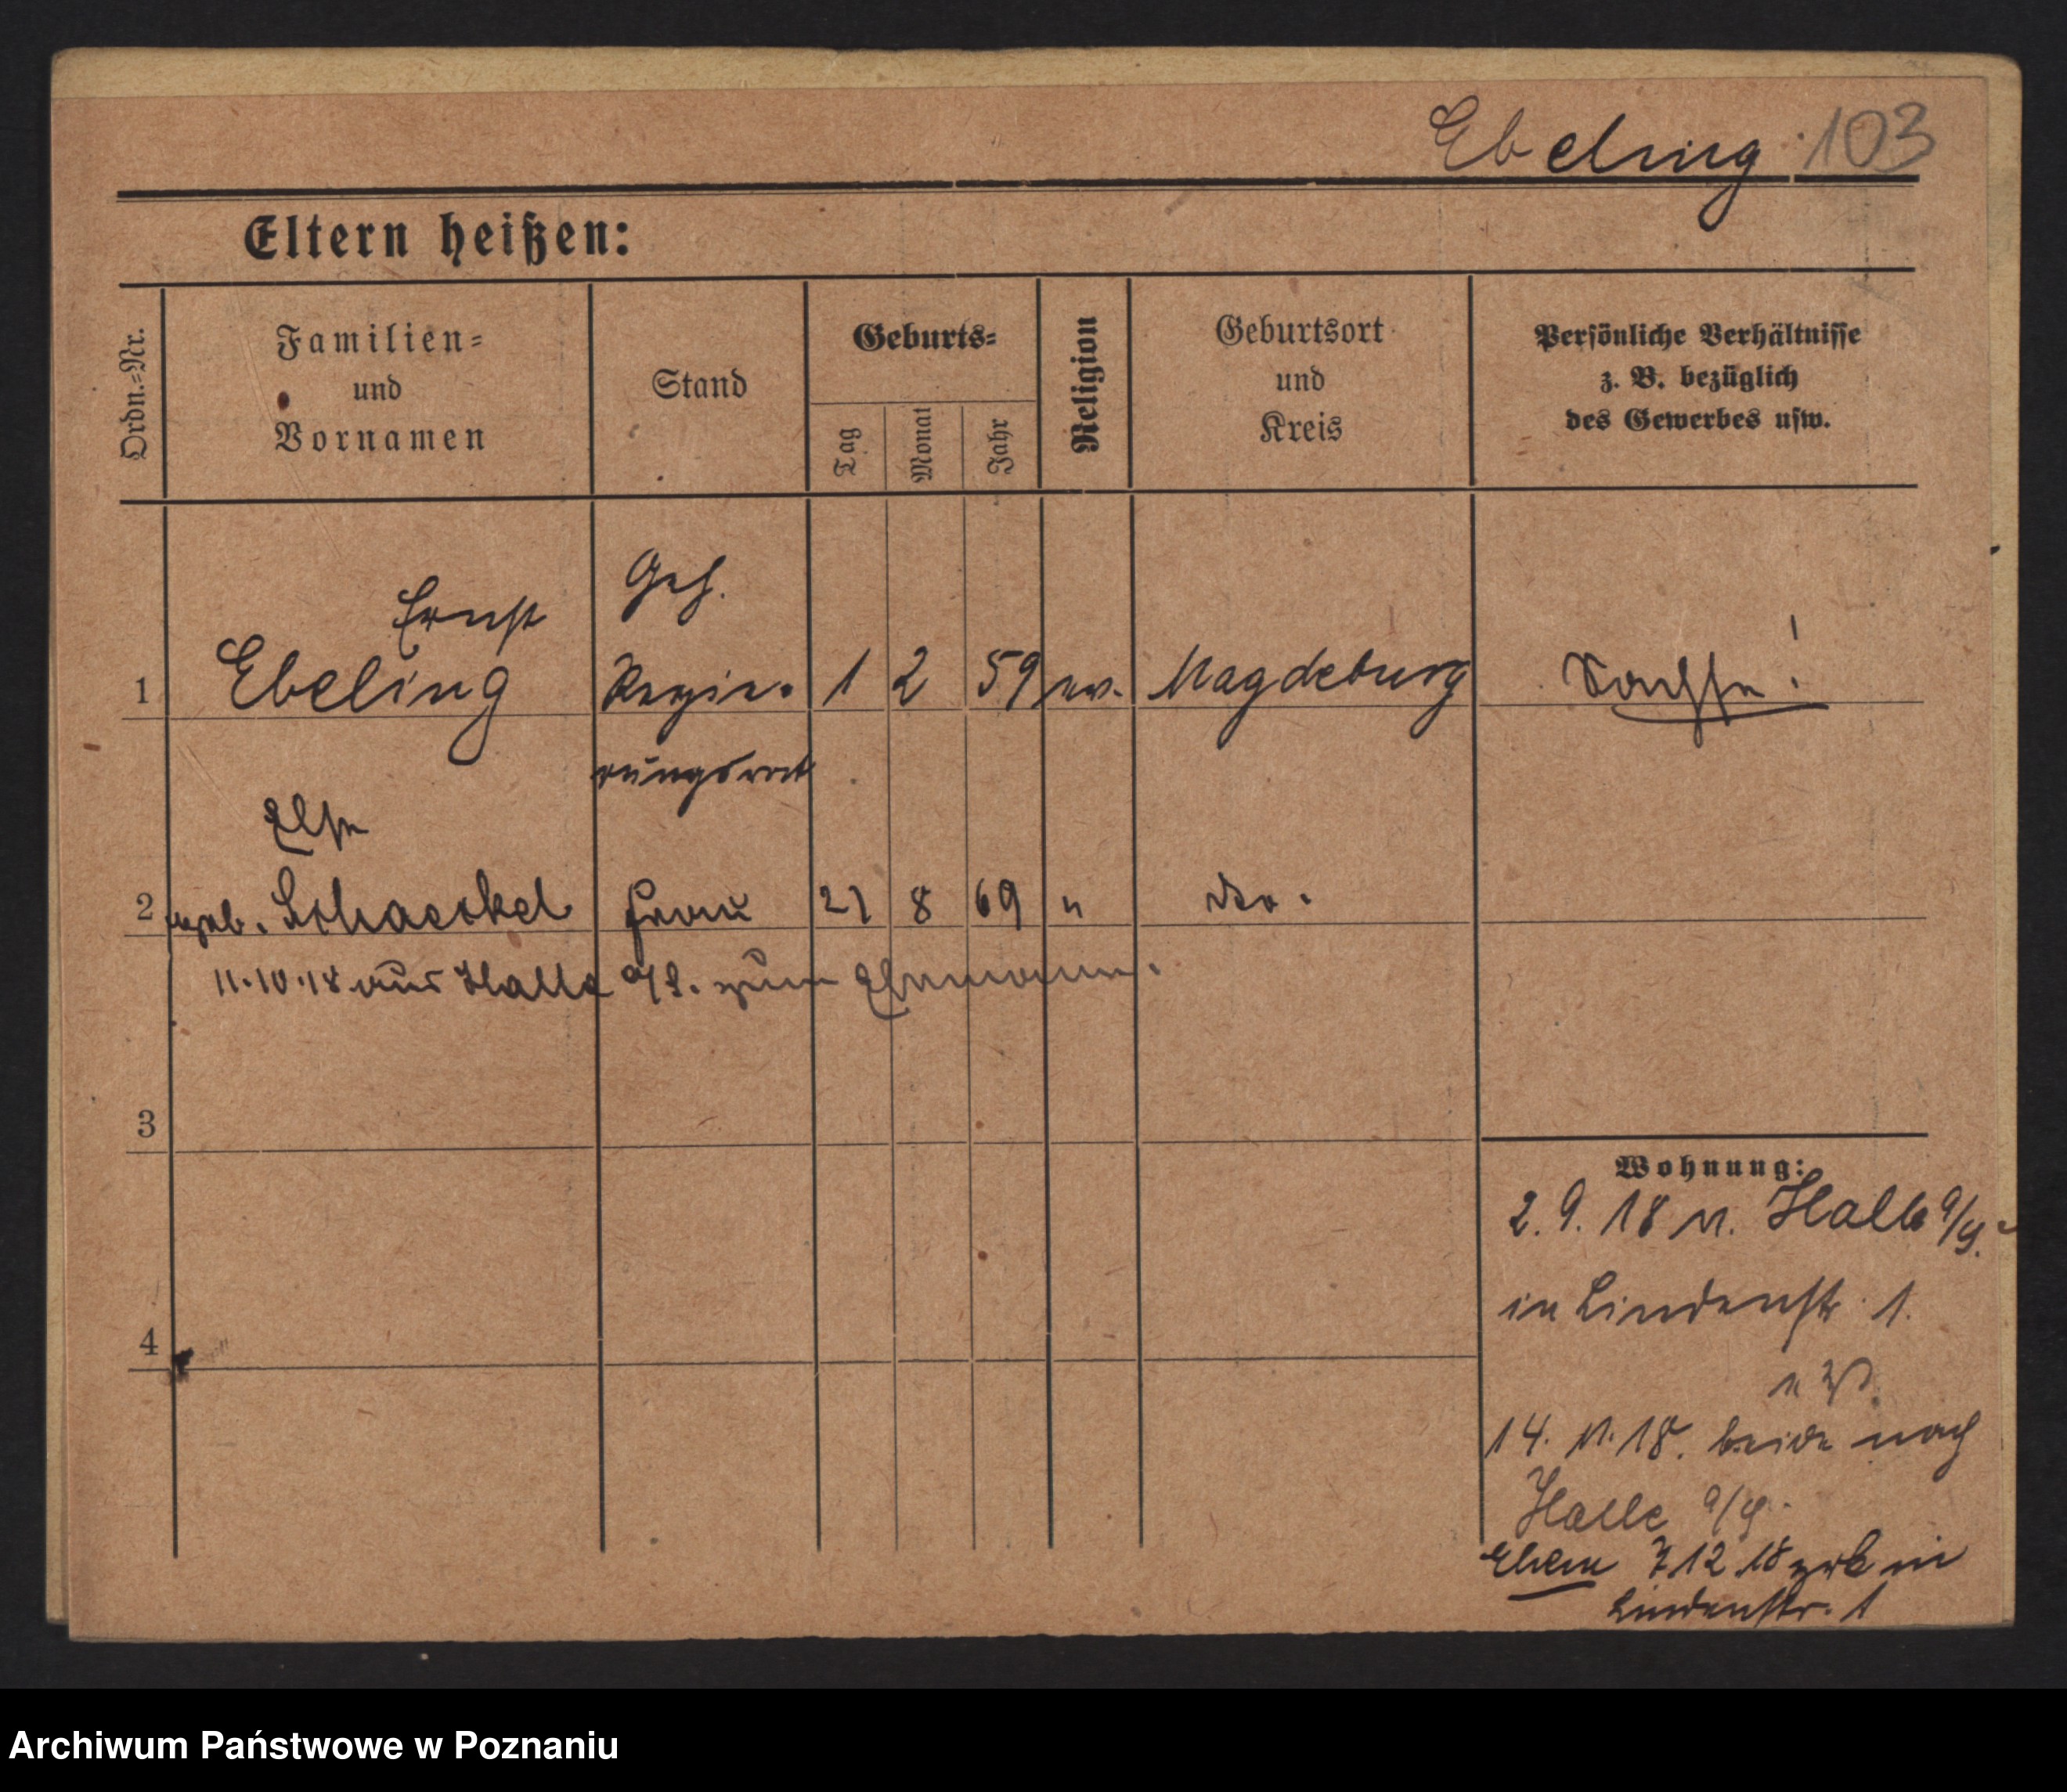 Ebeling 103
Eltern heißen:
Ordn.-Nr.
Familien-
und
Vornamen
Stand
Geburts-
Tag
Monat
Jahr
Religion
Geburtsort
und
Kreis
Persönliche Verhältnisse
z. B. bezüglich
des Gewerbes usw.
Ernst
Geh.
1 Ebeling Regie- 1 2 59 ev. Magdeburg !
rungsrat
Else
2 geb. Schaeckel Frau 21 8 69 " do.
11.10.18 aus Halle a/S. zum Ehemann.
3
4
Wohnung:
2. 9. 18 v. Halle a/S.
in Lindenstr. 1.
14. 11. 18. beide nach
Halle a/S.
Ehem 7 12 18 zrk in
Lindenstr. 1
Archiwum Państwowe w Poznaniu